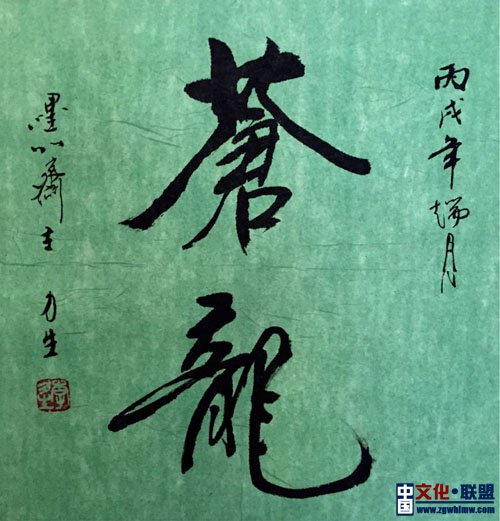 丙戌年端月
蒼龍
墨心齋主 力生
中国
文化·联盟
www.zgwhlmw.com